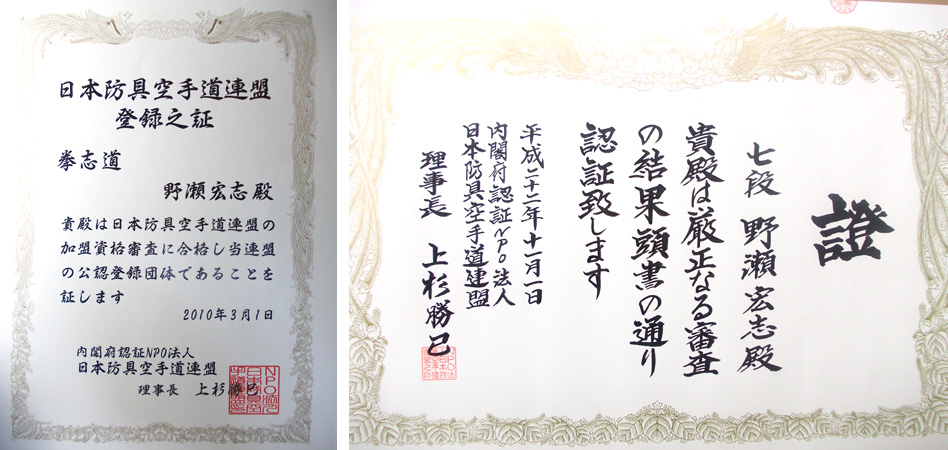 日本防具空手道連盟
登録之証
拳志道
野瀬宏志殿
貴殿は日本防具空手道連盟の
加盟資格審査に合格し当連盟
の公認登録団体であることを
証します
2010年3月1日
内閣府認証NPO法人
日本防具空手道連盟
理事長 上杉勝巳
證
七段 野瀬宏志殿
貴殿は厳正なる審査
の結果頭書の通り
認証致します
平成二十二年十一月一日
内閣府認証NPO法人
日本防具空手道連盟
理事長 上杉勝巳